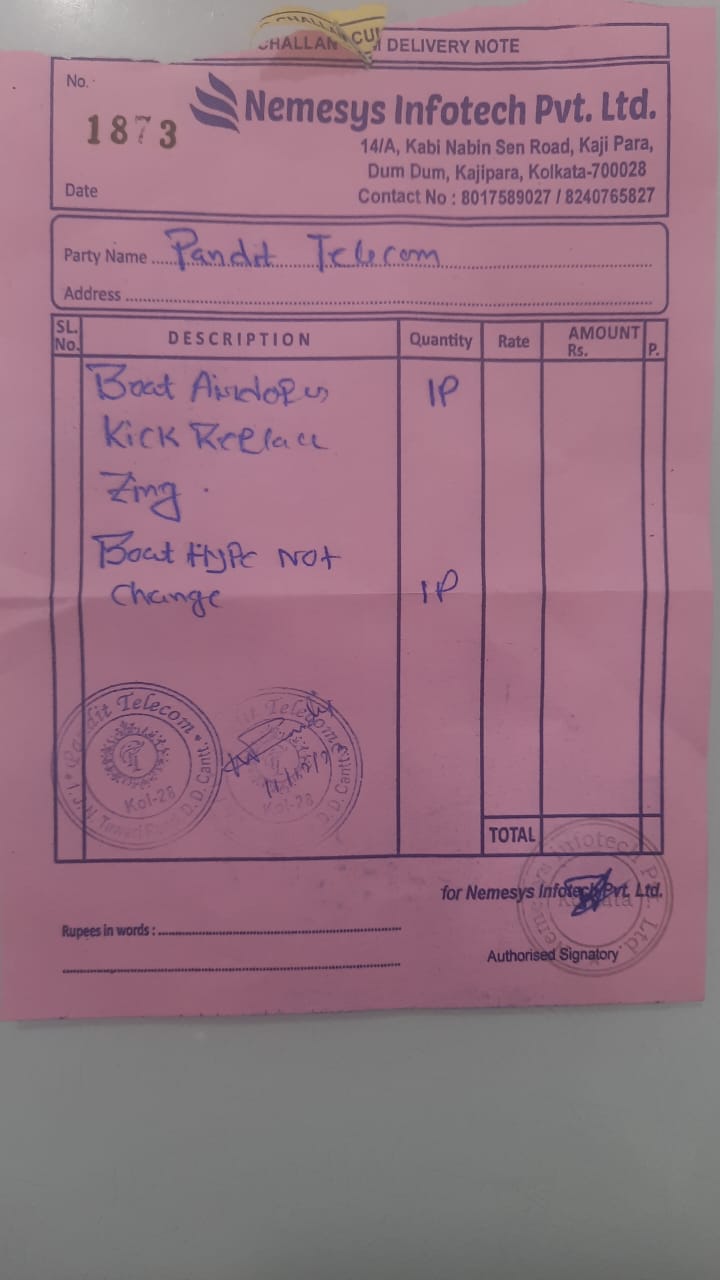 CHALLAN CUM DELIVERY NOTE
No.
1873
Nemesys Infotech Pvt. Ltd.
14/A, Kabi Nabin Sen Road, Kaji Para,
Dum Dum, Kajipara, Kolkata-700028
Date
Contact No : 8017589027 / 8240765827
Party Name Pandit Telecom
Address
SL. No. DESCRIPTION Quantity Rate AMOUNT Rs. P.
Boat Airdopes 1P
Kick Replace
Zing
Boat Hype Not
Change 1P
Pandit Telecom
Kol-28
D.D. Cantt.
Telecom
Kol-28
D.D. Cantt.
TOTAL
for Nemesys Infotech Pvt. Ltd.
Rupees in words :
Authorised Signatory